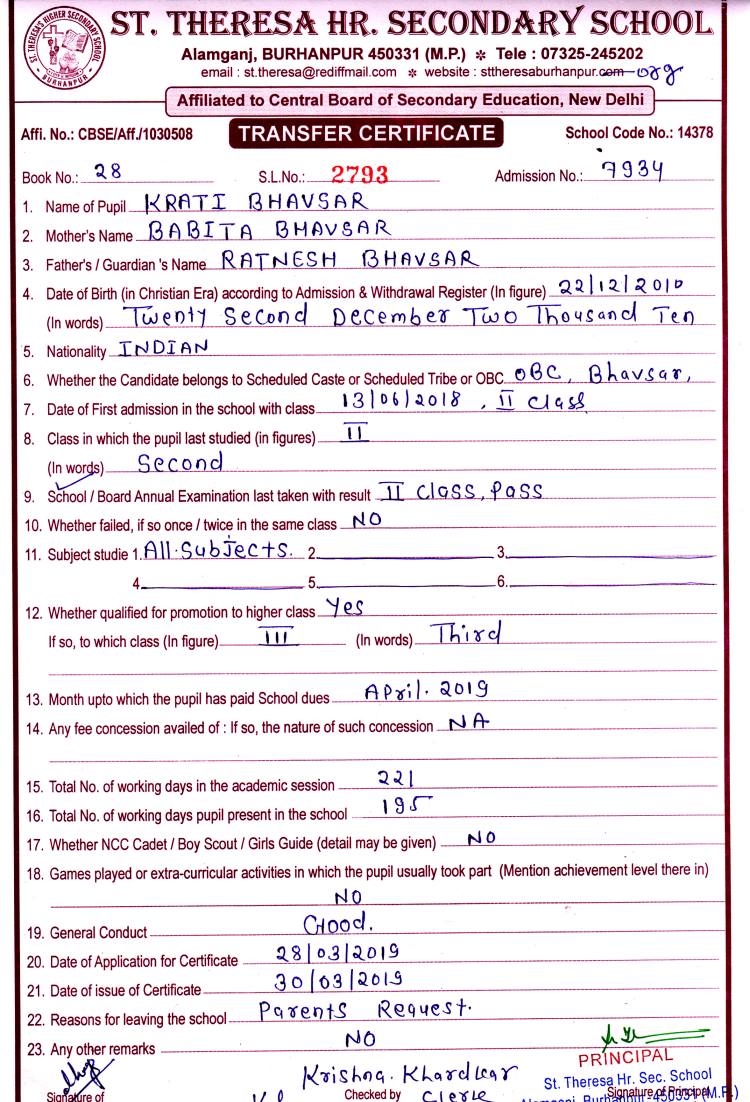 ST. THERESA HR. SECONDARY SCHOOL
ST. THERESA'S HIGHER SECONDARY SCHOOL
BURHANPUR
Alamganj, BURHANPUR 450331 (M.P.) ✻ Tele : 07325-245202
email : st.theresa@rediffmail.com ✻ website : sttheresaburhanpur.com org
Affiliated to Central Board of Secondary Education, New Delhi
Affi. No.: CBSE/Aff./1030508 TRANSFER CERTIFICATE School Code No.: 14378
Book No.: 28 S.L.No.: 2793 Admission No.: 7934
1. Name of Pupil KRATI BHAVSAR
2. Mother's Name BABITA BHAVSAR
3. Father's / Guardian 's Name RATNESH BHAVSAR
4. Date of Birth (in Christian Era) according to Admission & Withdrawal Register (In figure) 22/12/2010
(In words) Twenty Second December Two Thousand Ten
5. Nationality INDIAN
6. Whether the Candidate belongs to Scheduled Caste or Scheduled Tribe or OBC OBC, Bhavsar,
7. Date of First admission in the school with class 13/06/2018, II Class
8. Class in which the pupil last studied (in figures) II
(In words) Second
9. School / Board Annual Examination last taken with result II Class, Pass
10. Whether failed, if so once / twice in the same class NO
11. Subject studie 1. All Subjects. 2. 3.
4. 5. 6.
12. Whether qualified for promotion to higher class Yes
If so, to which class (In figure) III (In words) Third
13. Month upto which the pupil has paid School dues April. 2019
14. Any fee concession availed of : If so, the nature of such concession NA
15. Total No. of working days in the academic session 221
16. Total No. of working days pupil present in the school 195
17. Whether NCC Cadet / Boy Scout / Girls Guide (detail may be given) NO
18. Games played or extra-curricular activities in which the pupil usually took part (Mention achievement level there in)
NO
19. General Conduct Good.
20. Date of Application for Certificate 28/03/2019
21. Date of issue of Certificate 30/03/2019
22. Reasons for leaving the school Parents Request.
23. Any other remarks NO
PRINCIPAL
Krishna. Khardkar St. Theresa Hr. Sec. School
Signature of Checked by Clerk Signature of Principal
Burhanpur-450331 (M.P.)